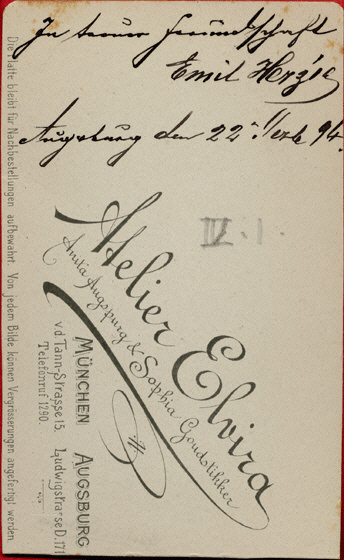 In treuer Freundschaft
Emil Herzig
Augsburg den 22ten 94.
IV. 1.
Atelier Elvira
Anita Augspurg & Sophia Goudstikker
MÜNCHEN AUGSBURG
v.d. Tann-Strasse 15. Ludwigstrasse D.171
Telefonruf 1290.
Die Platte bleibt für Nachbestellungen aufbewahrt. Von jedem Bilde können Vergrösserungen angefertigt werden.